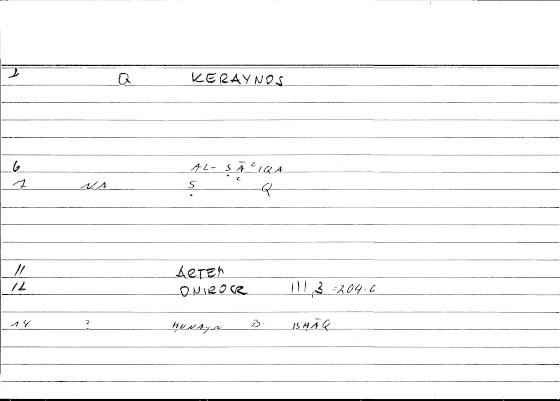 2 Q KERAYNOS
6 AL-ṢĀʿIQA
7 NA Ṣ Q
11 ARTEM
12 ONIROCR III,3 =204.6
14 ? HUNAYN B. ISHĀQ